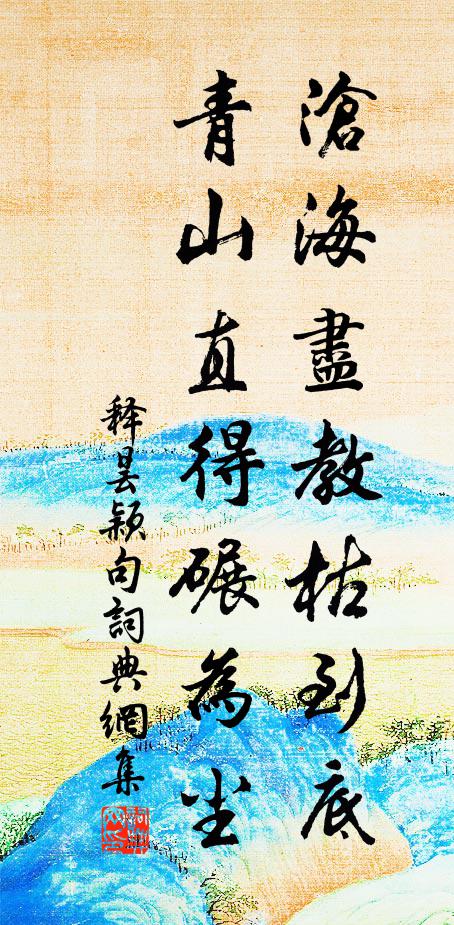 滄海盡教枯到底
青山直得碾為尘
释昙颖句詞典網集